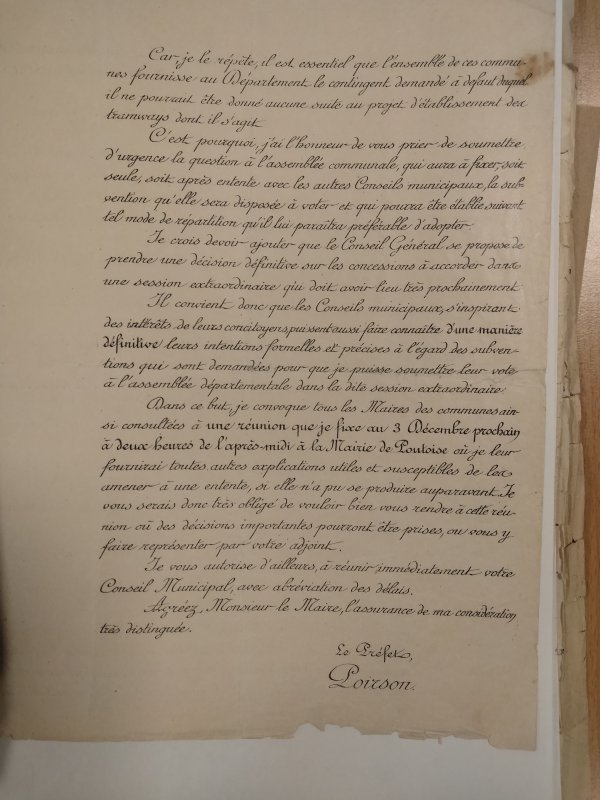 Car, je le répète, il est essentiel que l'ensemble de ces commu-
nes fournisse au Département le contingent demandé à defaut duquel
il ne pourrait être donné aucune suite au projet d'établissement des
tramways dont il s'agit
C'est pourquoi, j'ai l'honneur de vous prier de soumettre
d'urgence la question à l'assemblée communale, qui aura à fixer, soit
seule, soit après entente avec les autres Conseils municipaux, la sub-
vention qu'elle sera disposée à voter et qui pourra être établie suivant
tel mode de répartition qu'il lui paraitra préférable d'adopter.
Je crois devoir ajouter que le Conseil Général se propose de
prendre une décision définitive sur les concessions à accorder dans
une session extraordinaire qui doit avoir lieu très prochainement
Il convient donc que les Conseils municipaux, s'inspirant
des intérêts de leurs concitoyens, puissent aussi faire connaître d'une manière
définitive leurs intentions formelles et précises à l'égard des subven-
tions qui sont demandées pour que je puisse soumettre leur vote
à l'assemblée départementale dans la dite session extraordinaire
Dans ce but, je convoque tous les Maires des communes ain-
si consultées à une réunion que je fixe au 3 Décembre prochain
à deux heures de l'après-midi à la Mairie de Pontoise où je leur
fournirai toutes autres explications utiles et susceptibles de les
amener à une entente, si elle n'a pu se produire auparavant. Je
vous serais donc très obligé de vouloir bien vous rendre à cette réu-
nion où des décisions importantes pourront être prises, ou vous y
faire représenter par votre adjoint.
Je vous autorise d'ailleurs, à réunir immédiatement votre
Conseil Municipal, avec abréviation des délais.
Agréez, Monsieur le Maire, l'assurance de ma considération
très distinguée.
Le Préfet,
Poirson.